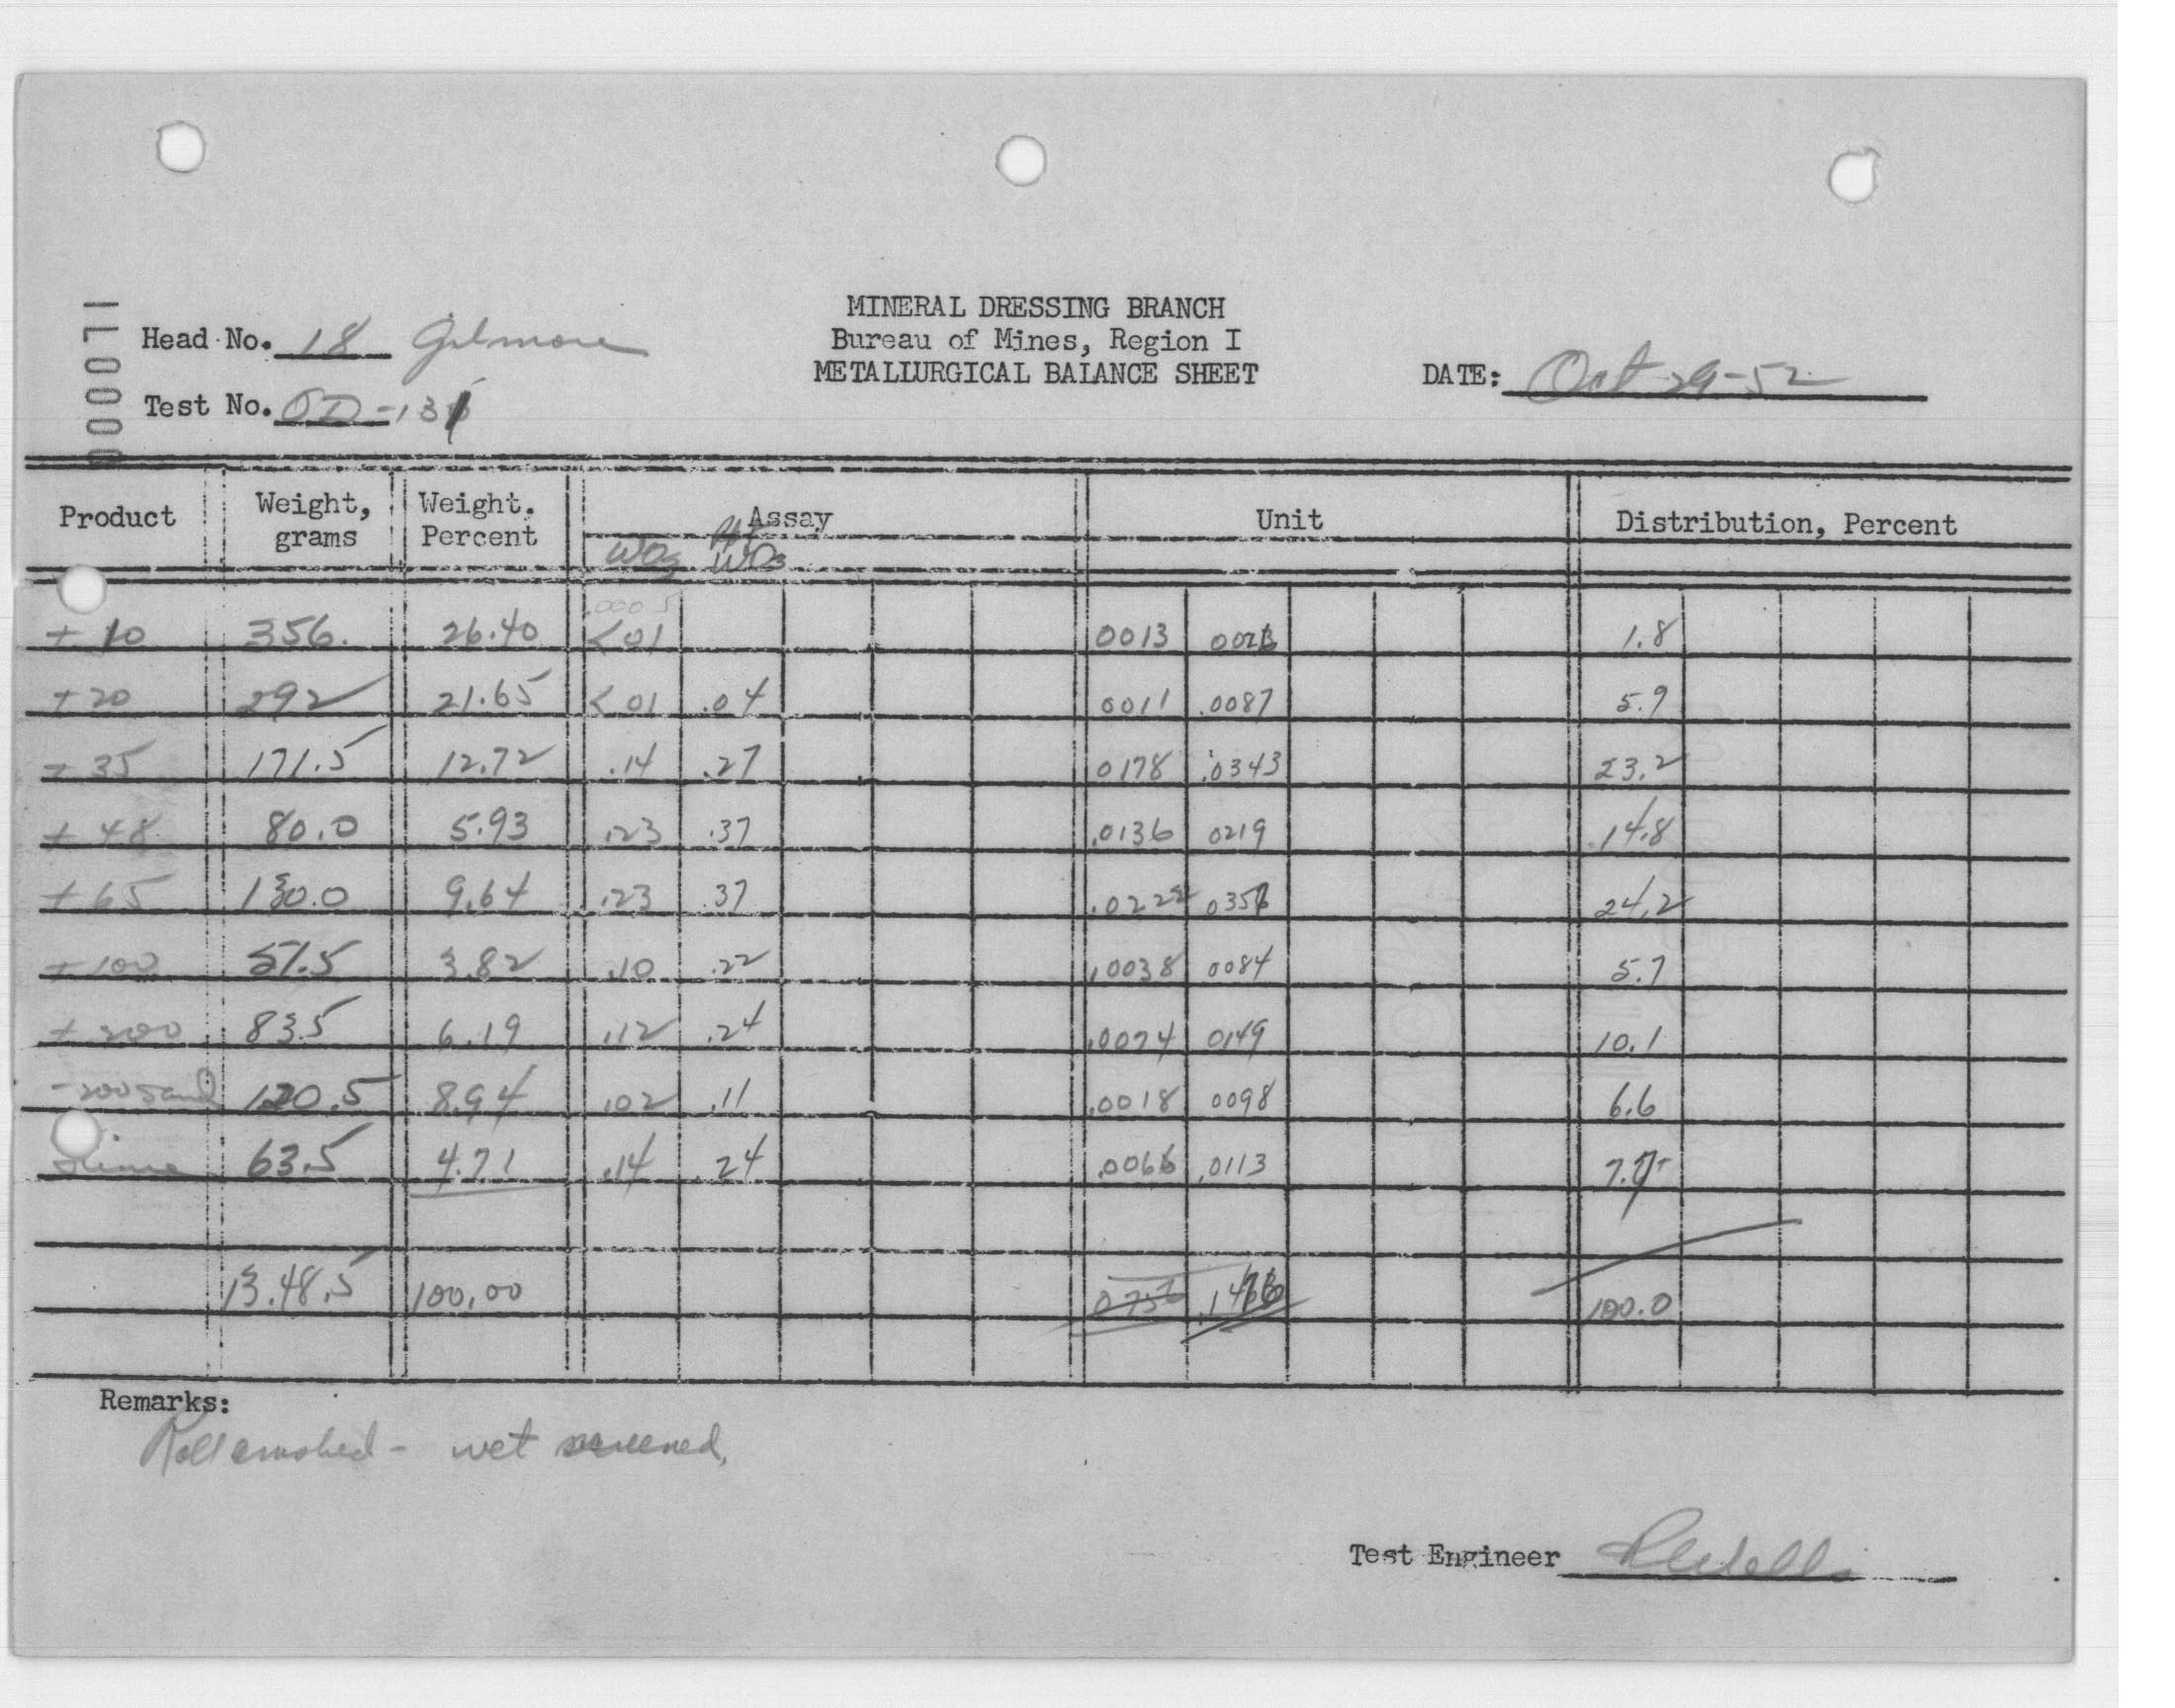 00071
MINERAL DRESSING BRANCH
Head No. 18 Gilmore Bureau of Mines, Region I
METALLURGICAL BALANCE SHEET DATE: Oct 29-52
Test No. OD-131
Product Weight, grams Weight, Percent Assay Unit Distribution, Percent
WO3 Ppt WO3
.0005
+ 10 356. 26.40 <01 0013 0026 1.8
+ 20 292 21.65 <01 .04 0011 .0087 5.9
+ 35 171.5 12.72 .14 .27 0178 .0343 23.2
+ 48 80.0 5.93 .23 .37 .0136 0219 14.8
+ 65 130.0 9.64 .23 .37 .0222 0357 24.2
+ 100 51.5 3.82 .10 .22 .0038 0084 5.7
+ 200 83.5 6.19 .12 .24 .0074 0149 10.1
-200 sand 120.5 8.94 .02 .11 .0018 0098 6.6
Slime 63.5 4.71 .14 .24 .0066 .0113 7.7
13.48.5 100.00 0756 .1476 100.0
Remarks:
Roll crushed - wet screened,
Test Engineer